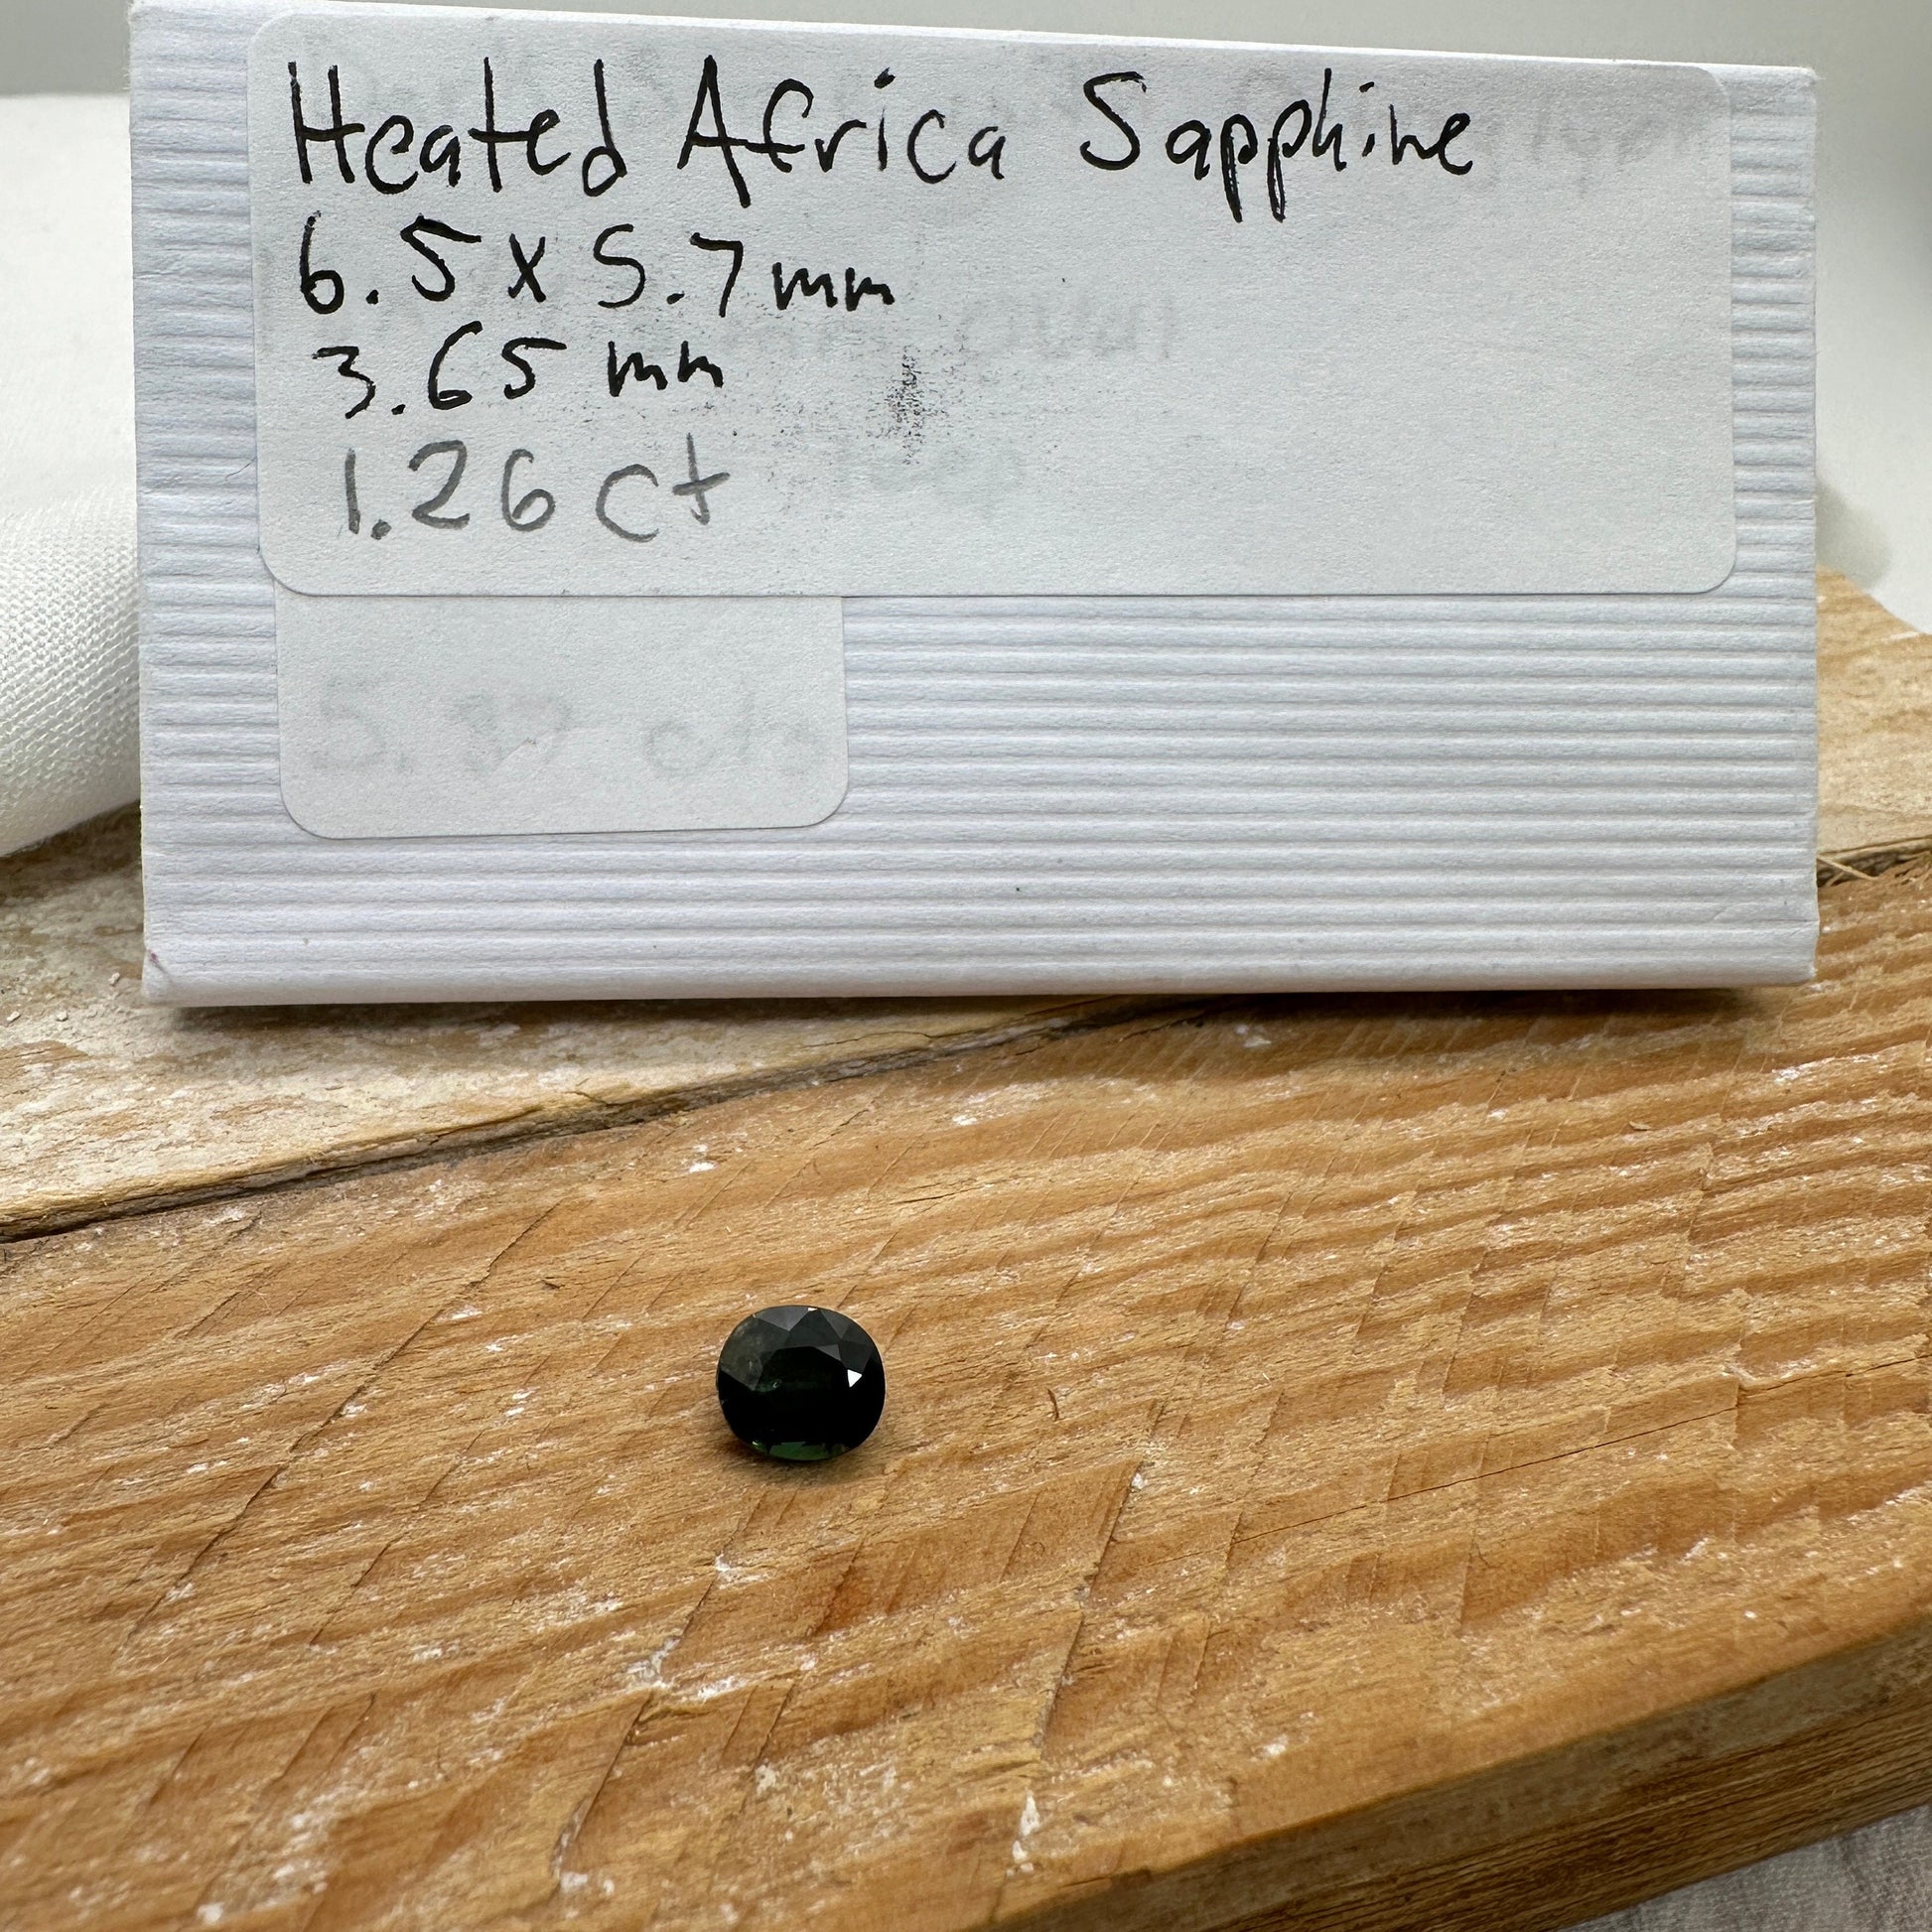 Heated Africa Sapphire
6.5 x 5.7mm
3.65 mm
1.26 ct